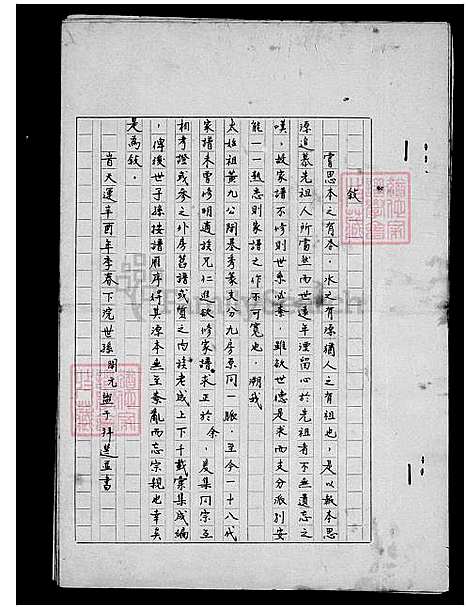 敘
嘗思木之有本，水之有源猶人之有祖也，是以報本思
源追慕先祖人所當然而世遠年湮留心於先祖者不無遺忘之
嘆，故家譜不修則世系必紊，雖欲世德是求而支分派別安
能一一熟志則家譜之作不可寬也，溯我
太始祖黃九公開基秀篆支分九房原同一脈，至今一十八代
家譜未曾修明遺族兄仁進欲修家譜，求正於余，爰集同宗互
相考證或參之外房舊譜或質之內族老成上下千載彙集成編
，俾後世子孫按譜雁序得其源本無至紊亂而忘宗親也幸矣
是為敘。
昔天運辛酉年季春下浣世孫開元盥手拜